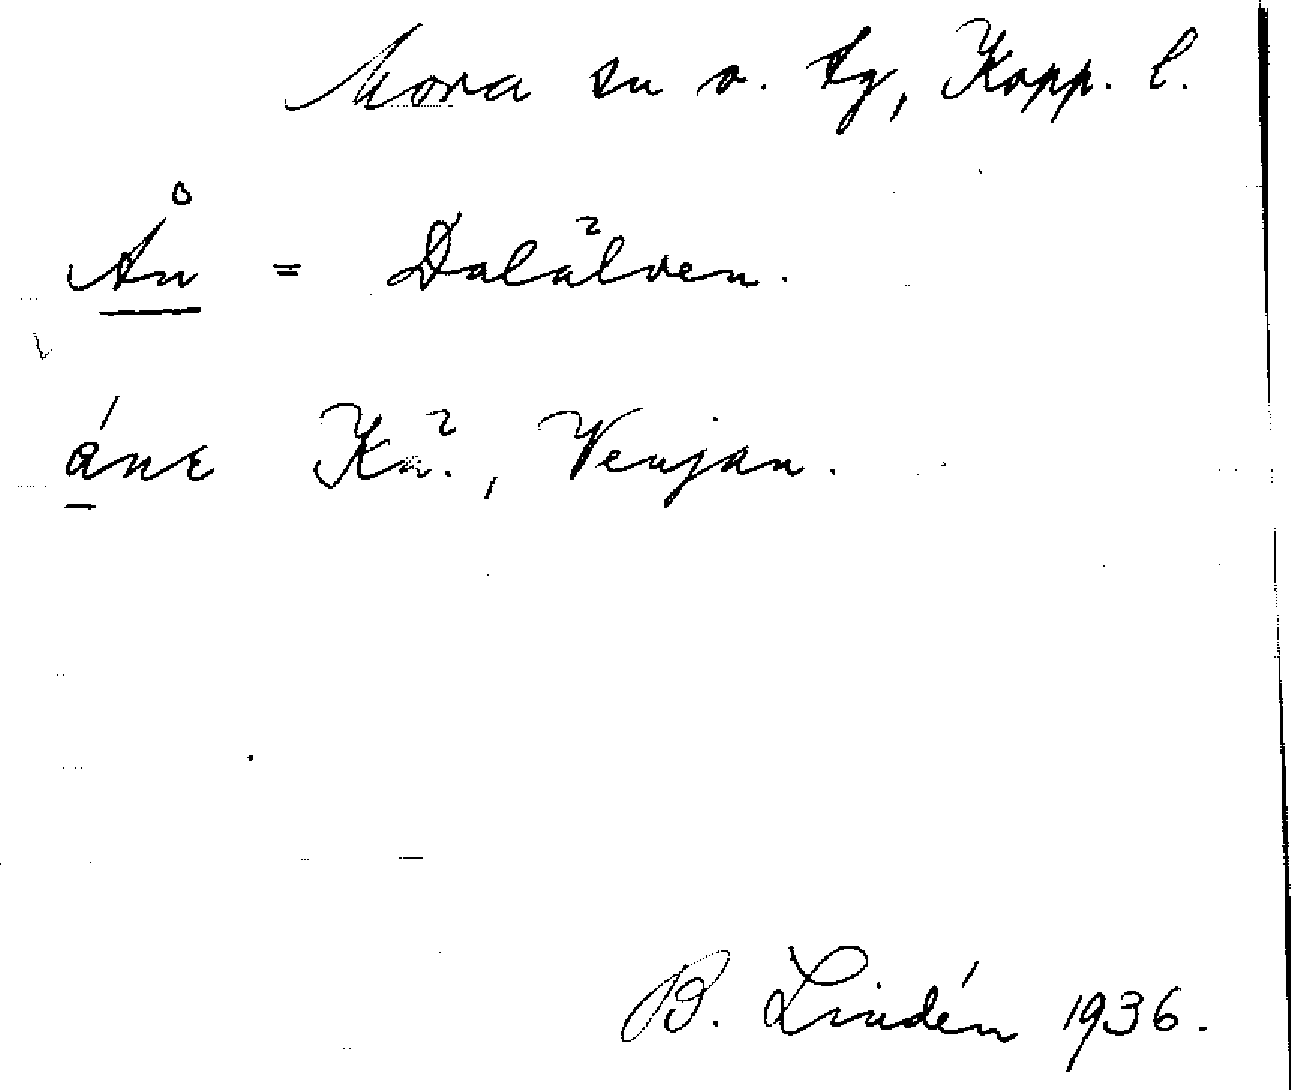 Mora sn o. tg, Kopp. l.
Ån = Dalälven.
ánɛ Kä., Venjan.
B. Lindén 1936.